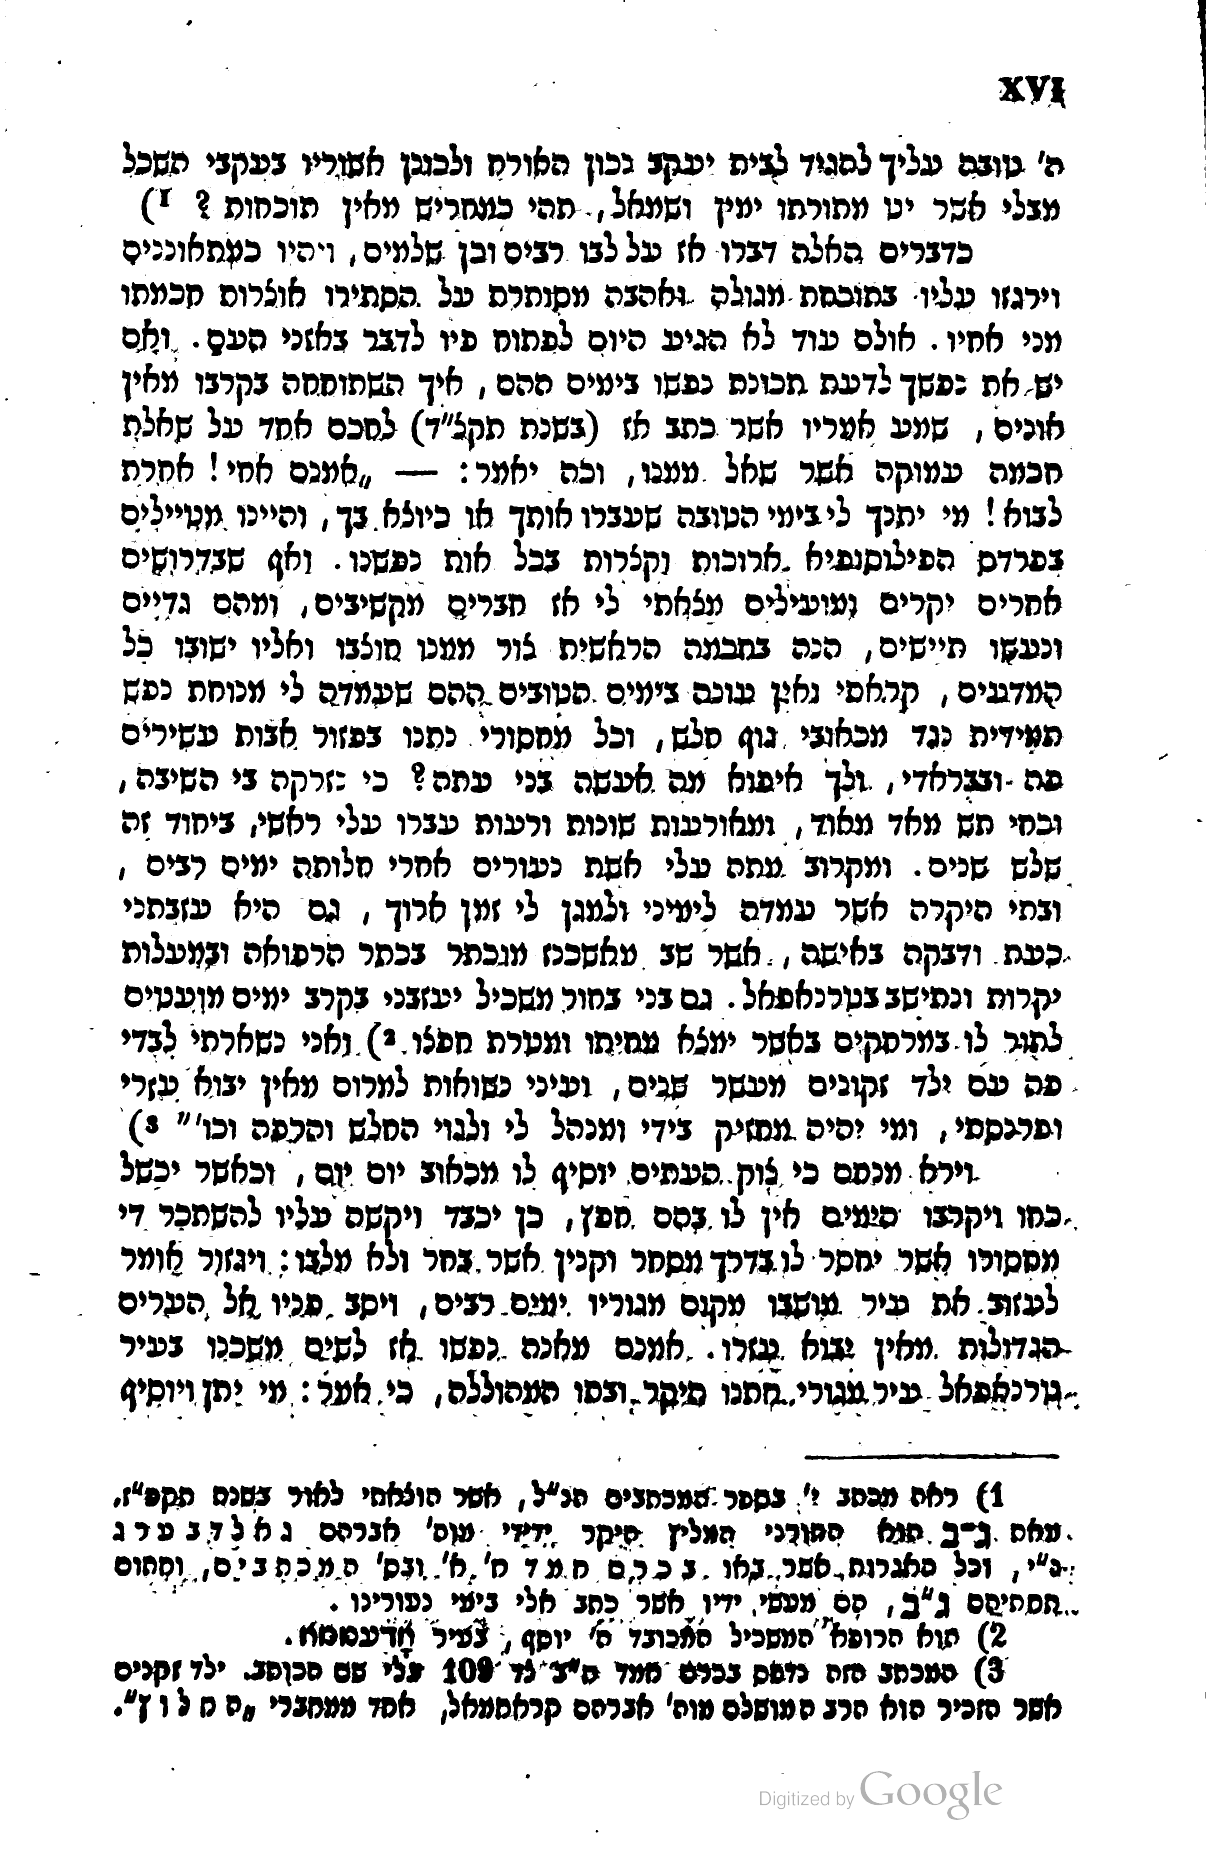 XVI
ה' טובה עליך להגיד לבית יעקב נכון האורח ולכונן אשוריו בעקבי השכל
מבלי אשר יט מתורתו ימין ושמאל, תהי כמחריש מאין תוכחות ? 1)
כדברים האלה דברו אז על לבו רבים ובן שלמים, ויהיו כמתאוננים
וירגזו עליו בתוכחת מגולה ואהבה מסותרת על הסתירו אוצרות חכמתו
מני אחיו. אולם עוד לא הגיע היום לפתוח פיו לדבר באזני העם. ואם
יש את נפשך לדעת תכונת נפשו בימים ההם, איך השתוחחה בקרבו מאין
אונים, שמע אמריו אשר כתב אז (בשנת תקצ"ד) לחכם אחד על שאלת
חכמה עמוקה אשר שאל ממנו, וכה יאמר: — „אמנם אחי! אחרת
לבוא! מי יתנך לי בימי הטובה שעברו אותך או כיוצא בך, והיינו מטיילים
בפרדס הפילוסופיא ארוכות וקצרות בכל אות נפשנו. ואף שבדרושים
אחרים יקרים ומועילים מצאתי לי אז חברים מקשיבים, ומהם גדיים
ונעשו תיישים, הנה בחכמה הראשית צור ממנו חוצבו ואליו ישובו כל
המדעים, קראתי ואין עונה בימים הטובים ההם שעמדה לי מנוחת נפש
תמידית נגד מכאובי גוף חלש, וכל מחסורי נתנו בפזור אבות עשירים
פה ובבראדי, ולך איפוא מה אעשה בני עתה? כי נזרקה בי השיבה,
ובחי תש מאד מאוד, ומאורעות שונות ורעות עברו עלי ראשי, ביחוד זה
שלש שנים. ומקרוב מתה עלי אשת נעורים אחרי חלותה ימים רבים,
ובתי היקרה אשר עמדה לימיני ולמגן לי זמן ארוך, גם היא עזבתני
כעת ודבקה באישה, אשר שב מאשכנז מוכתר בכתר הרפואה ובמעלות
יקרות ונתישב בטרנאפאל. גם בני בחור משכיל יעזבני בקרב ימים מועטים
לתור לו במרחקים באשר ימצא מחיתו ומטרת חפצו. 2) ואני נשארתי לבדי
פה עם ילד זקונים מעשר שנים, ועיני נשואות למרום מאין יבוא עזרי
ופרנסתי, ומי יהיה מחזיק בידי ומנהל לי ולגוי החלש והרפה וכו'" 3)
וירא מנחם כי צוק העתים יוסיף לו מכאוב יום יום, וכאשר יכשל
כחו ויקרבו הימים אין לו בהם חפץ, כן יכבד ויקשה עליו להשתכר די
מחסורו אשר יחסר לו בדרך מסחר וקנין אשר בחר ולא מלבו: ויגזור אומר
לעזוב את עיר מושבו מקום מגוריו ימים רבים, ויסב פניו אל הערים
הגדולות מאין יבוא עזרו. אמנם מאנה נפשו אז לשים משכנו בעיר
טרנאפאל עיר מגורי חתנו היקר ובתו המהוללה, כי אמר: מי יתן ויוסיף
1) ראה מכתב י' בספר המכתבים הנ"ל, אשר הוצאתי לאור בשנת תקפ"ז,
מאת ג–ב הנא התורני המליץ היקר ידידי מוה' אברהם גאלדבערג
נ"י, וכל האגרות אשר באו בכרם חמד ח' א' ובס' המכתבים, וחתום
חתתיהם ג"ב, הם מעשי ידיו אשר כתב אלי בימי נעורינו.
2) הוא הרופא המשכיל המכובד ה' יוסף, בעיר אָדעססא.
3) המכתב הזה נדפס בכרם חמד ח"ב צד 109 עלי שם הכותב. ילד זקנים
אשר הזכיר הוא הרב המושלם מוה' אברהם קראחמאל, אחד ממחברי „החלוץ".
Digitized by Google